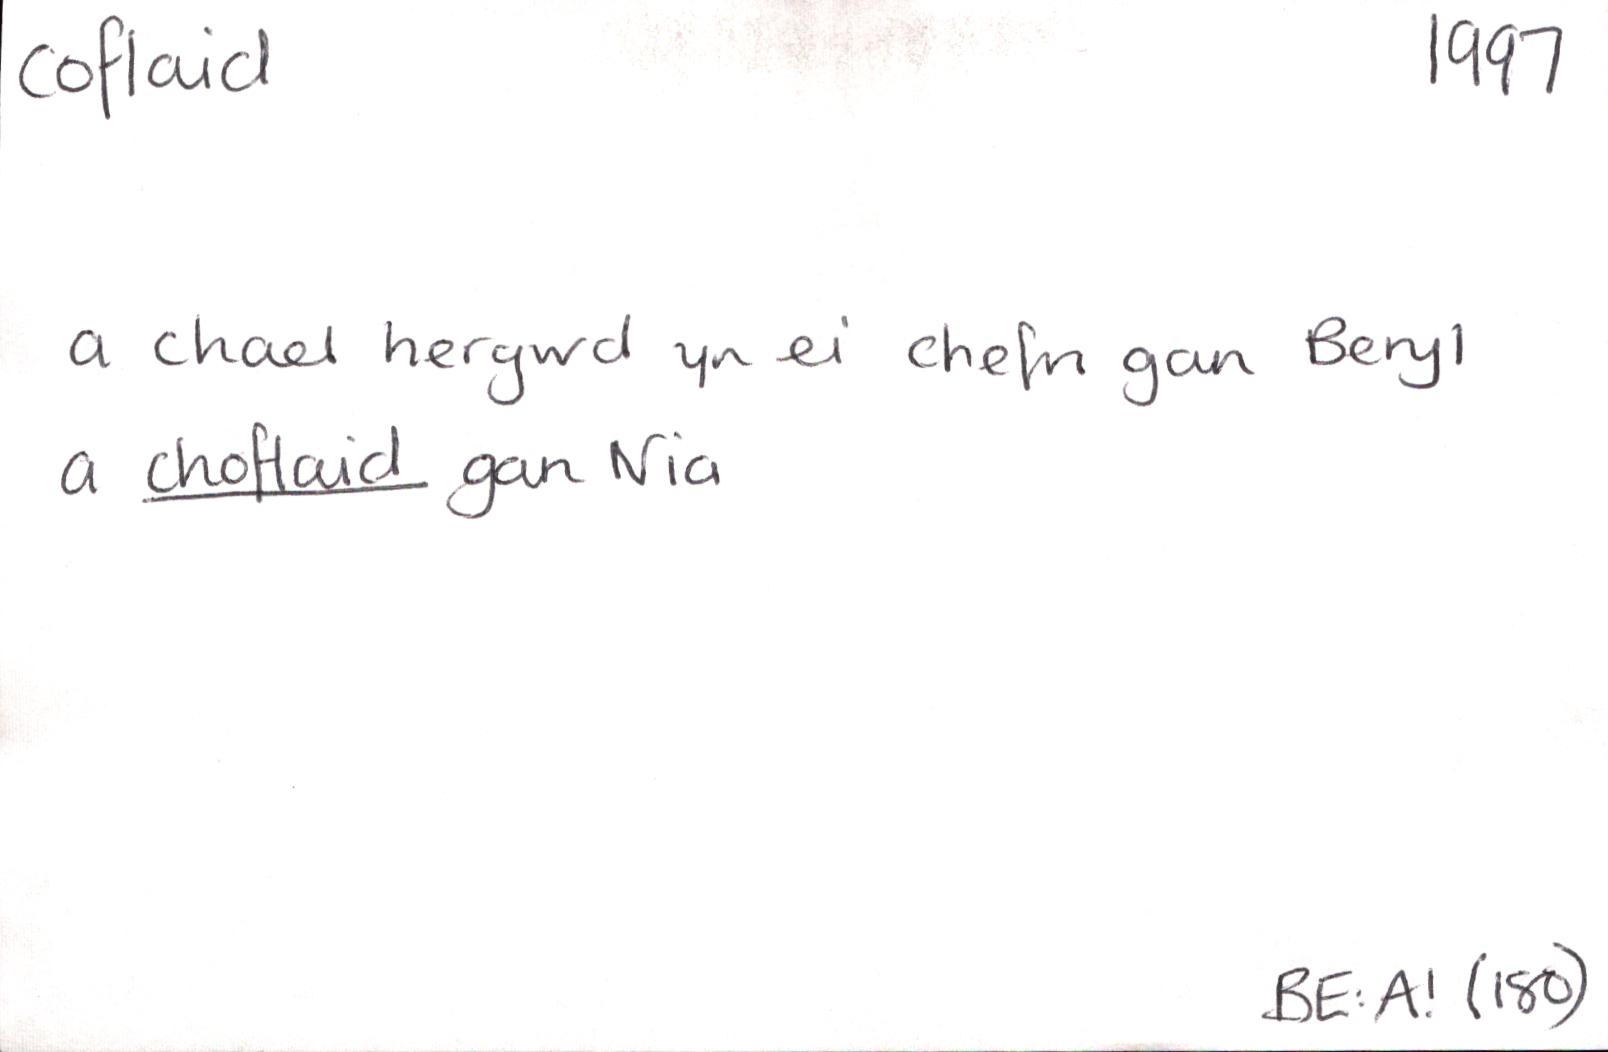 coflaid 1997
a chael hergwd yn ei chefn gan Beryl
a choflaid gan Nia
BE: A! (180)